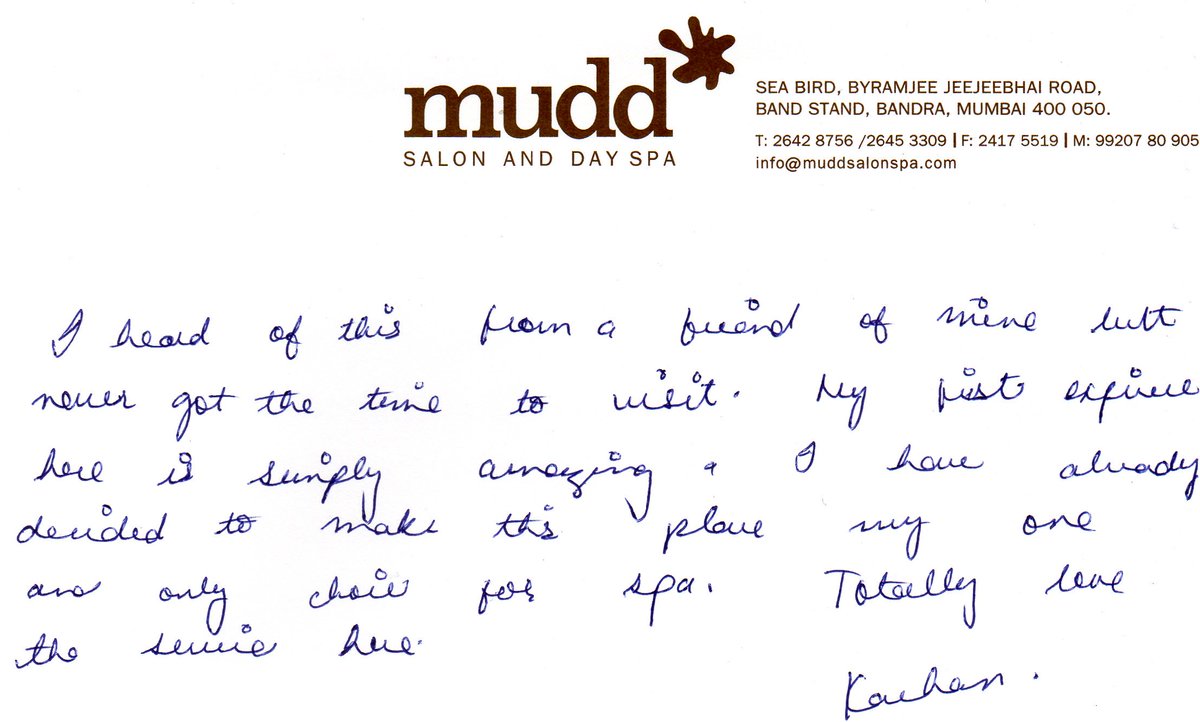 mudd
SALON AND DAY SPA
SEA BIRD, BYRAMJEE JEEJEEBHAI ROAD,
BAND STAND, BANDRA, MUMBAI 400 050.
T: 2642 8756 /2645 3309 | F: 2417 5519 | M: 99207 80 905
info@muddsalonspa.com
I heard of this from a friend of mine but
never got the time to visit. My first
here is simply amazing & I have already
decided to make this place my one
and only choice for spa. Totally love
the service here.